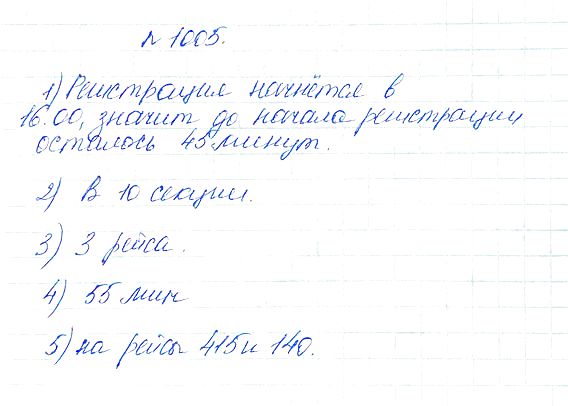 № 1005.
1) Регистрация начнётся в
16.00, значит до начала регистрации
осталось 45 минут.
2) В 10 секции.
3) 3 рейса.
4) 55 мин
5) на рейсы 415 и 140.